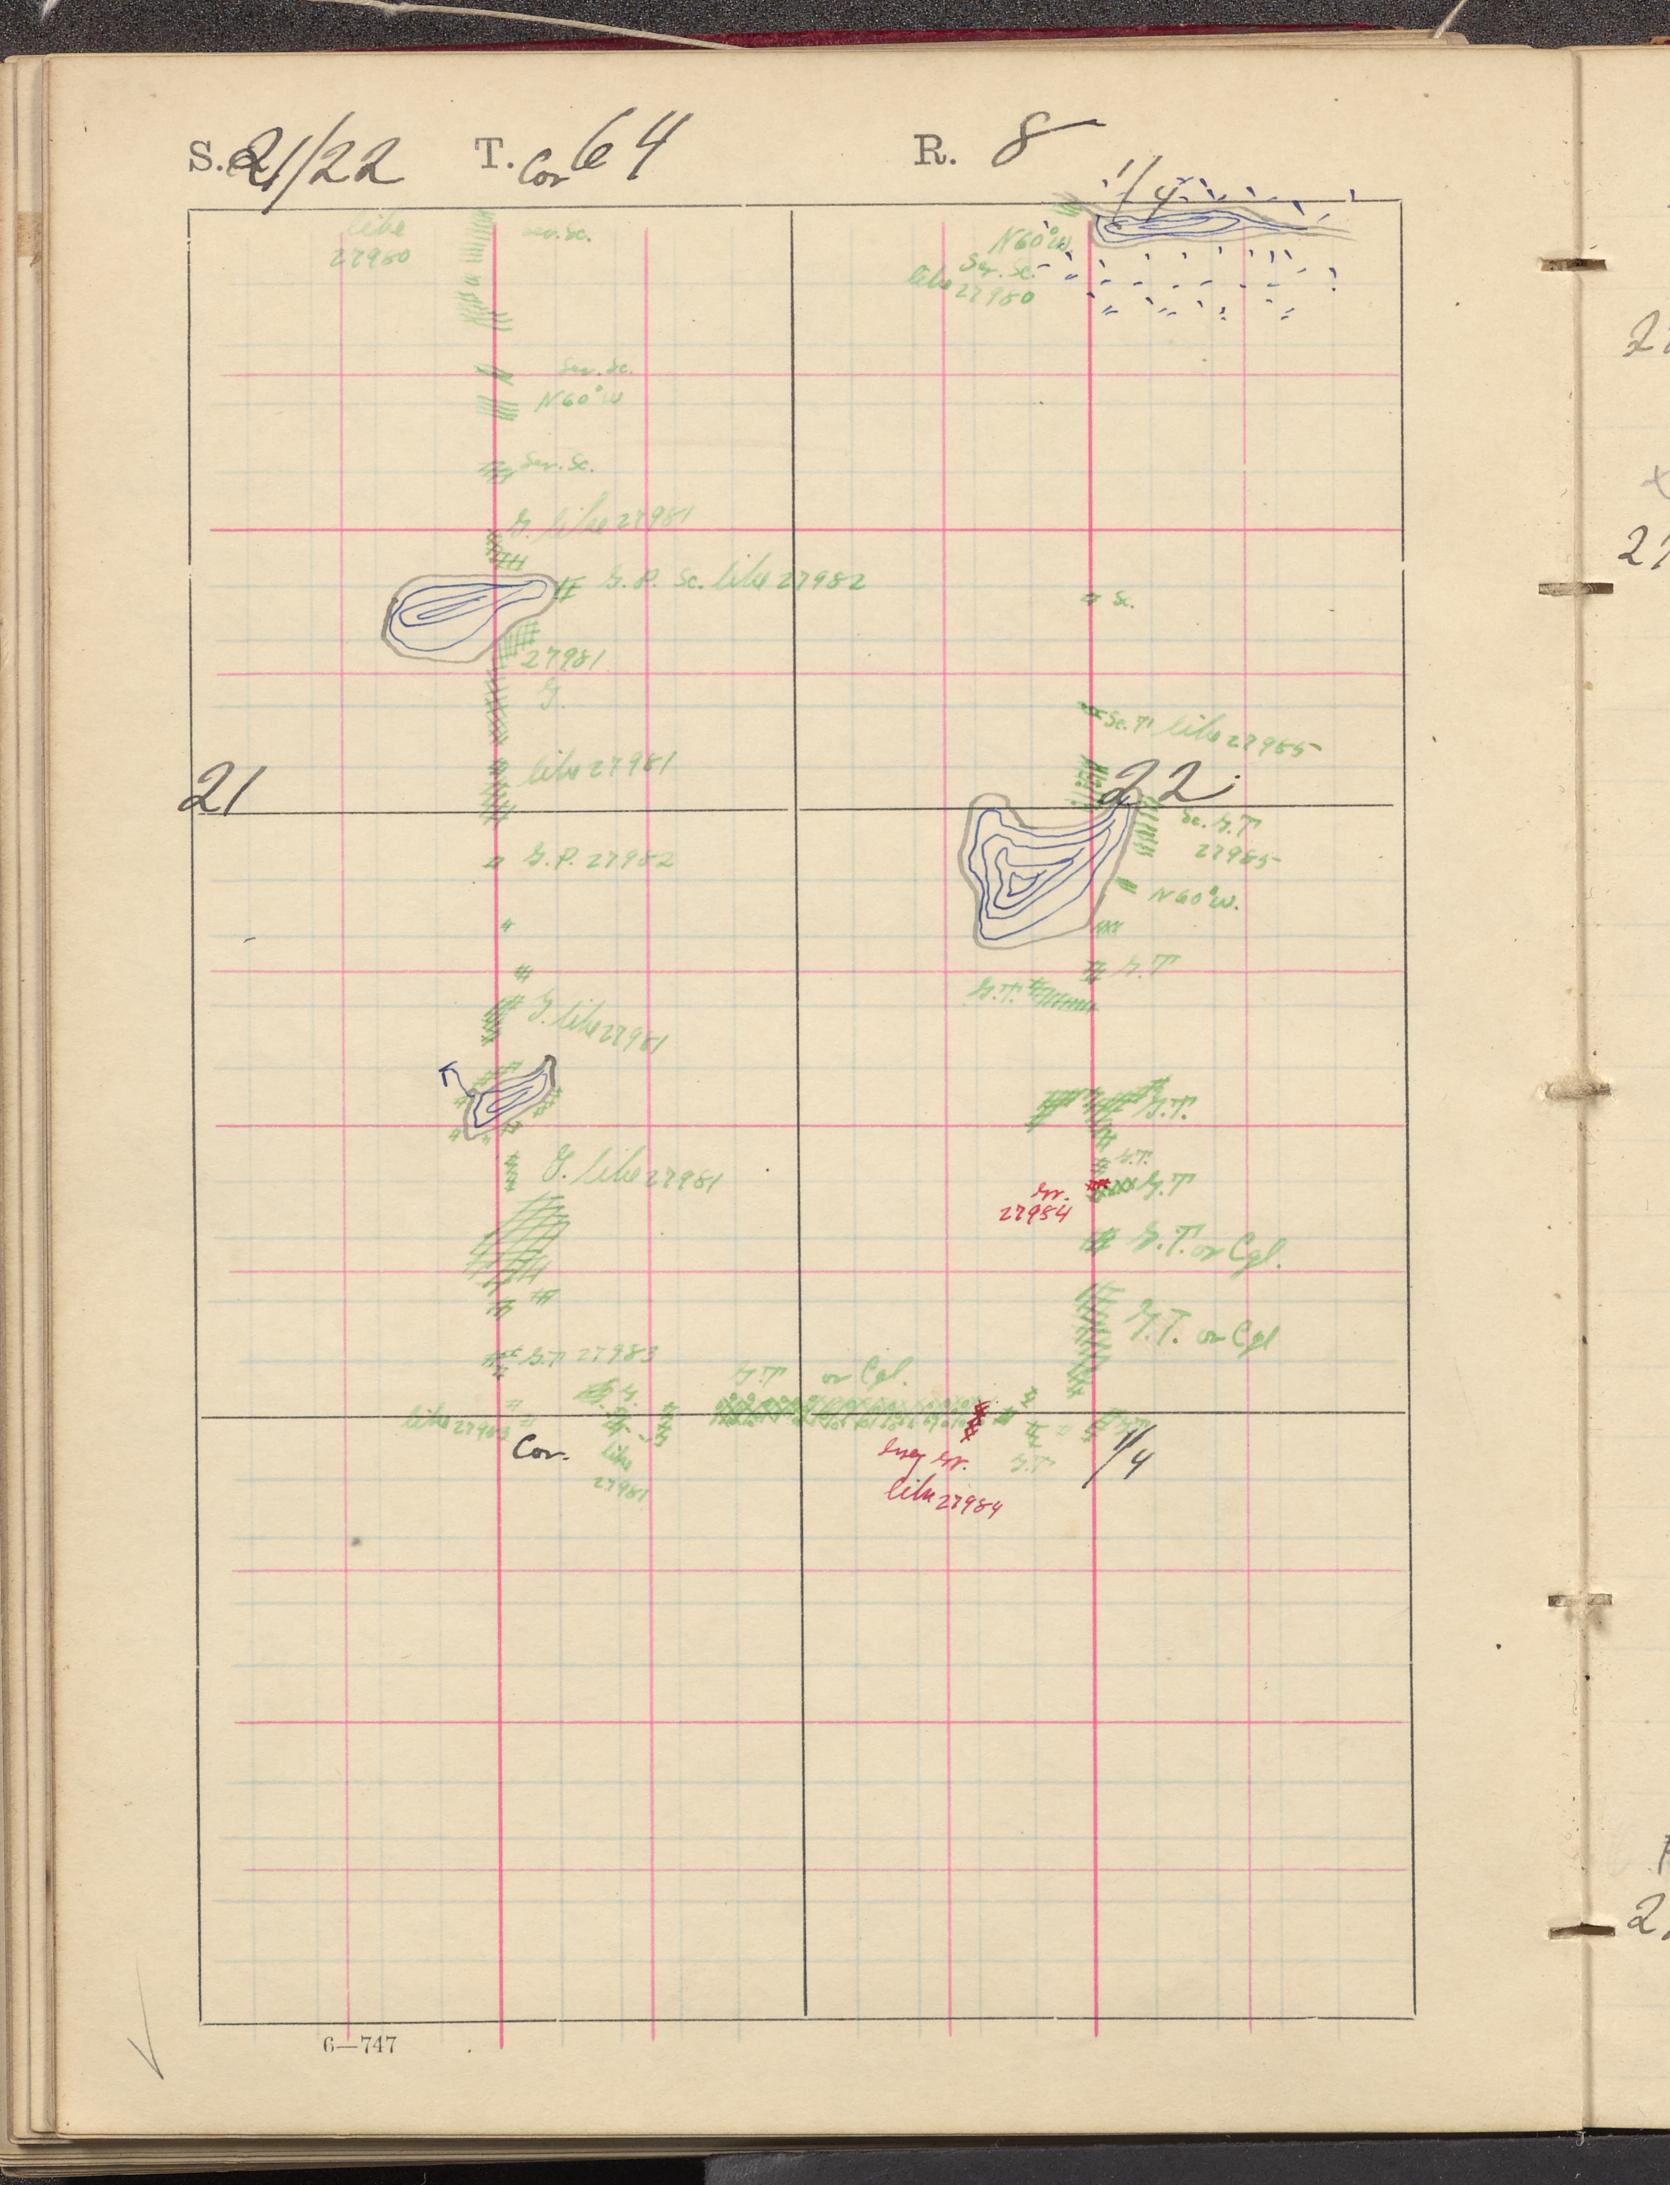 S. 21/22 T. 64 R. 8
Cor
1/4
like
27980
Ser. Sc.
N60°W.
Ser. Sc.
like 27980
Ser. Sc.
N60°W
Ser. Sc.
G. like 27981
G. P. Sc. like 27982
Sc.
27981
G.
Sc. T like 27985
like 27981
21
22
Sc. G.T
27985
G.P. 27982
N60°W.
G.T
G.T.
G. like 27981
G.T.
G.T.
G. like 27981
G.T
Gr.
27984
G.T. or Cgl.
G.T. or Cgl
G.T 27983
G.T or Cgl.
G.
like 27983
Cor.
like
27981
Gr.
like 27984
G.T
1/4
6—747